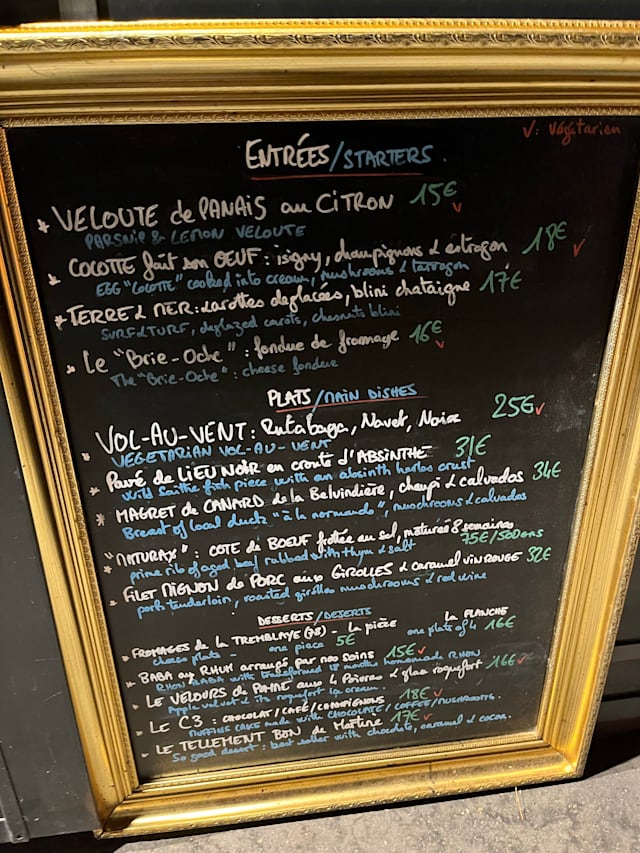 √: Végétarien
ENTRÉES/STARTERS
VELOUTE de PANAIS au CITRON 15€ √
PARSNIP & LEMON VELOUTE
COCOTTE fait son OEUF: isigny, champignons & estragon 18€ √
EGG "COCOTTE" cooked into cream, mushrooms & tarragon
TERRE & MER: carottes deglacées, blini chataigne 17€
SURF&TURF, deglazed carots, chesnuts blini
Le "Brie-Oche": fondue de fromage 16€ √
The "Brie-Oche": cheese fondue
PLATS/MAIN DISHES
VOL-AU-VENT: Rutabaga, Navet, Noix 25€ √
VEGETARIAN VOL-AU-VENT
Pavé de LIEU NOIR en croute d'ABSINTHE 31€
Wild Saithe fish piece with an absinth herbs crust
MAGRET de CANARD de la Belvindière, champi & calvados 34€
Breast of local duck "à la normande", mushrooms & calvados
"NATURAX": COTE de BOEUF frottée au sel, maturée 8 semaines
prime rib of aged beef rubbed with thym & salt 75€/
FILET MIGNON de PORC aux GIROLLES & caramel vin rouge 32€
pork tenderloin, roasted girolles mushrooms & red wine
DESSERTS/DESERTS
FROMAGES de la TREMBLAYE (78) - La pièce 5€ La PLANCHE 16€
cheese plate - one piece one plate of 4
BABA au RHUM arrangé par nos soins 15€ √
RHUM BABA with transformed 18 months homemade RHUM
LE VELOURS de POMME aux 4 Poivres & glace roquefort 16€ √
Apple velvet & its roquefort ice cream
LE C3: CHOCOLAT/CAFÉ/CHAMPIGNONS 18€ √
MUFFINS CAKE made with CHOCOLATE/COFFEE/MUSHROOMS.
LE TELLEMENT BON de Martine 17€ √
So good desert: best seller with chocolate, caramel & cocoa.